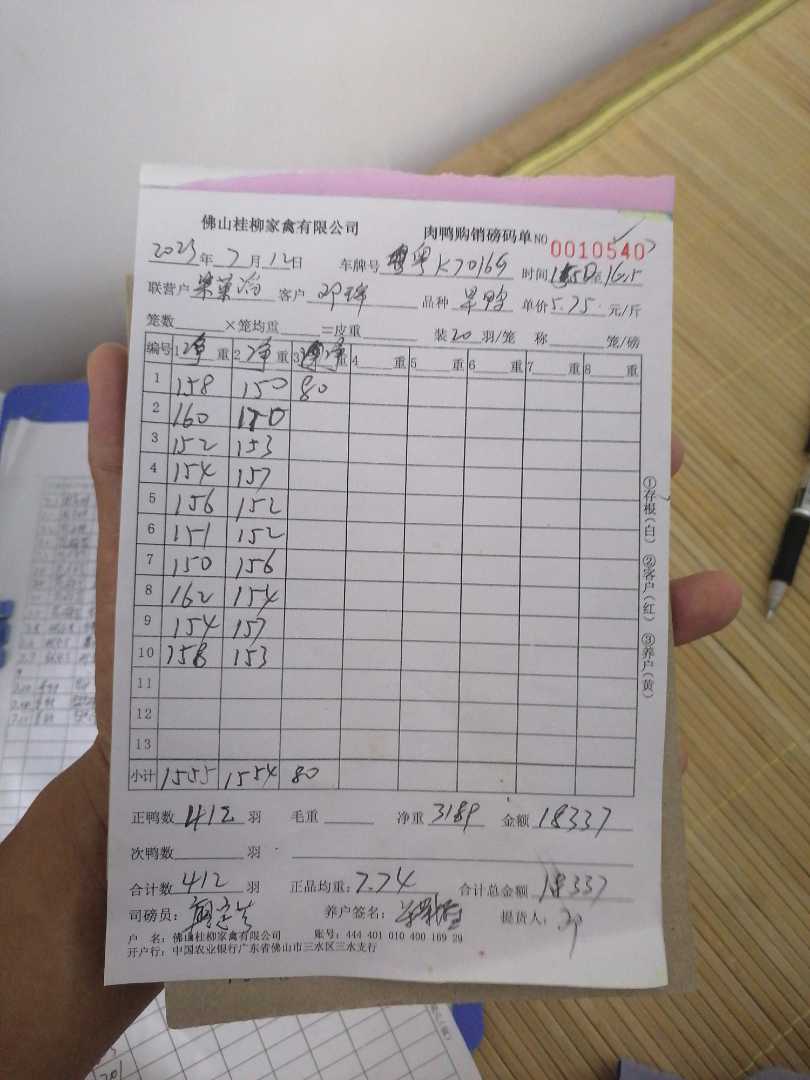 佛山桂柳家禽有限公司 肉鸭购销磅码单 NO 0010540
2023年7月12日 车牌号 粤K70169 时间 至16.5
联营户 客户 邓 品种 旱鸭 单价5.75元/斤
笼数 ×笼均重 =皮重 装20羽/笼 称 笼/磅
编号 1净重 2净重 3净重 4 重 5 重 6 重 7 重 8 重
1 158 150 80
2 160 150
3 152 153
4 154 157
5 156 152
6 151 152
7 150 156
8 162 154
9 154 157
10 158 153
11
12
13
小计 1555 1554 80
正鸭数 412 羽 毛重 净重 3189 金额 18337
次鸭数 羽
合计数 412 羽 正品均重:7.74 合计总金额 18337
司磅员: 养户签名: 提货人:邓
户 名:佛山桂柳家禽有限公司 账号:444 401 010 400 169 29
开户行:中国农业银行广东省佛山市三水区三水支行
①存根(白) ②客户(红) ③养户(黄)